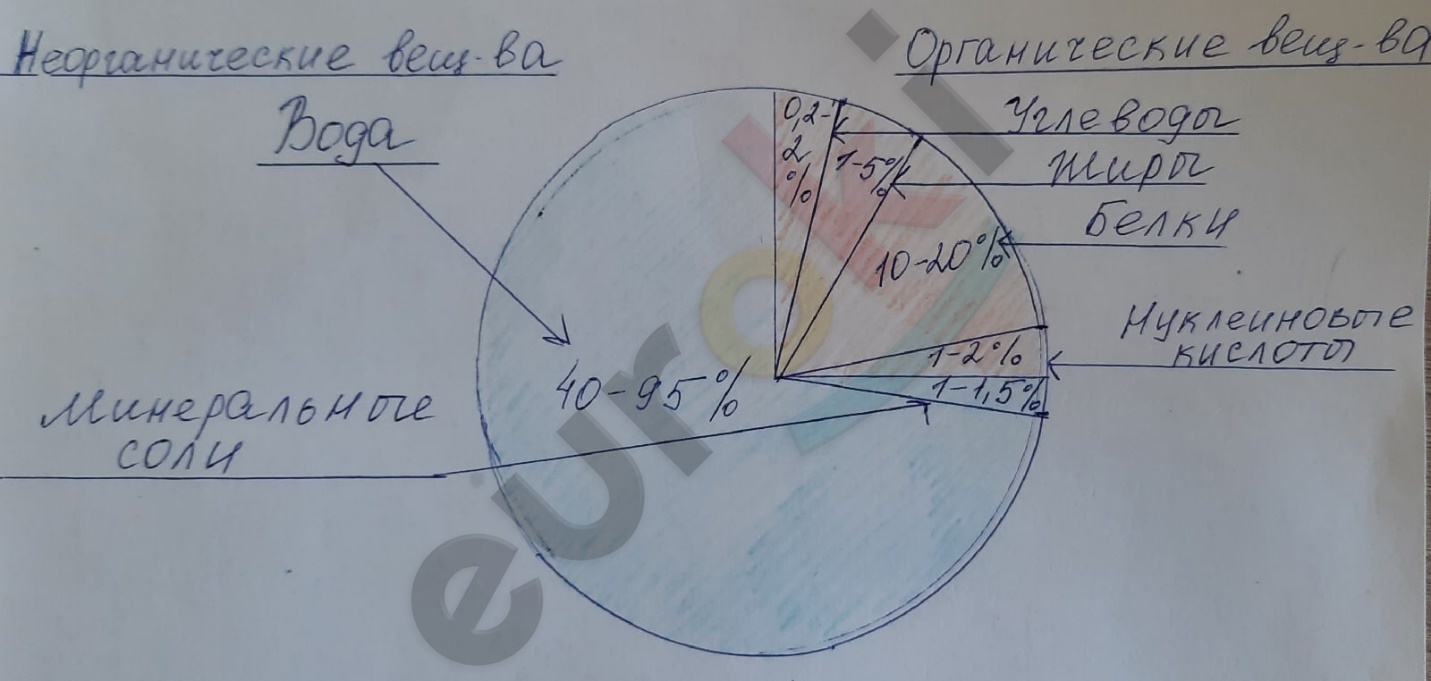 Неорганические вещ-ва
Органические вещ-ва
Вода
Углеводы
Жиры
Белки
Нуклеиновые
кислоты
Минеральные
соли
0,2-
2
%
1-5%
10-20%
1-2%
1-1,5%
40-95%
euroki